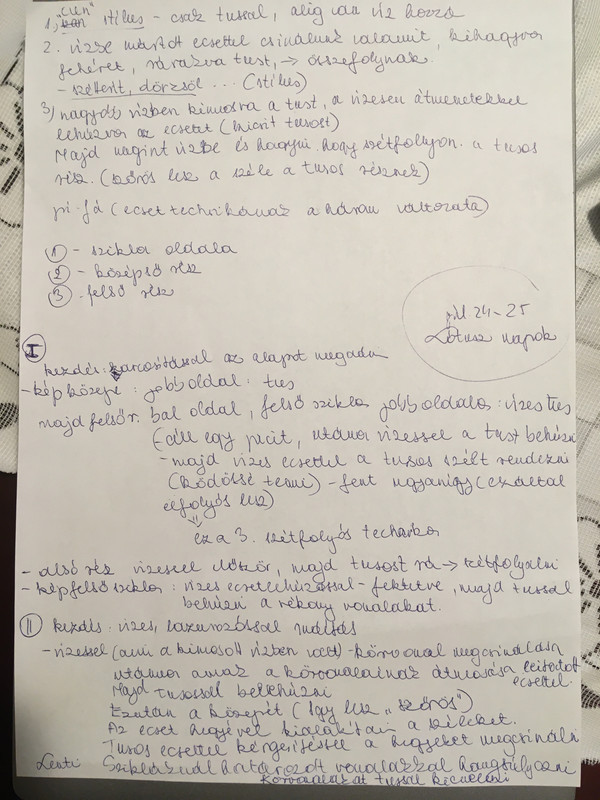 1, "cien" stílus - csak tussal, alig van víz hozzá
2. vízbe mártott ecsettel csinálunk valamit, kihagyva
fehéret, rárakva tust, → összefolynak.
- szétterít, dörzsöl ... (stílus)
3, nagyjából vízben kimosva a tust, a vizesen átmenetekkel
lehúzva az ecsetet (kicsit tusost)
Majd megint vízbe és hagyni, hogy szétfolyjon a tusos
rész. (szőrös lesz a széle a tusos résznek)
pl-fá (ecsettechnikának a három változata)
① - szikla oldala
② - középső rész
③ - felső rész
júl. 24-25
Lótusz napok
I
kezdés: karcosítással az alapot megadni
- kép közepe: jobb oldal: tus
majd felső r. bal oldal, felső szikla jobb oldala: vizes tus
(áll egy picit, utána vizessel a tust behúzni
- majd vizes ecsettel a tusos szélt rendezni
(ködössé tenni) - fent ugyanígy (ezáltal
elfolyós lesz)
⇓
ez a 3. szétfolyós technika
- alsó rész vizessel először, majd tusost rá → szétfolyatni
- kép felső szikla: vizes ecsetlehúzással - fektetve, majd tussal
behúzni a vékony vonalakat.
II kezdés: vizes, lazurozással indítás
- vizessel (ami a kimosott vízben volt) - körvonal megcsinálása
utána annak a körvonalainak átmosása leitatott
ecsettel.
Majd tusossal belehúzni
Ezután a közepét (így lesz "szőrös")
Az ecset hegyével kialakítani a széleket.
Tusos ecsettel kérgesítéssel a hegyeket megcsinálni
Lenti Szikláknál határozott vonalakkal hangsúlyozni
Körvonalakat tussal kiemelni